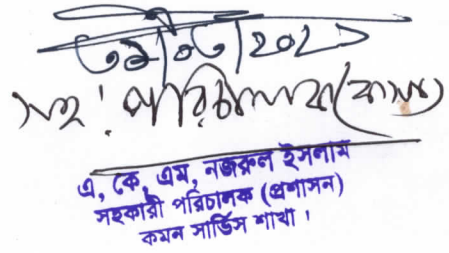 সহ: পরিচালক (কাসা)
এ, কে, এম, নজরুল ইসলাম
সহকারী পরিচালক (প্রশাসন)
কমন সার্ভিস শাখা।